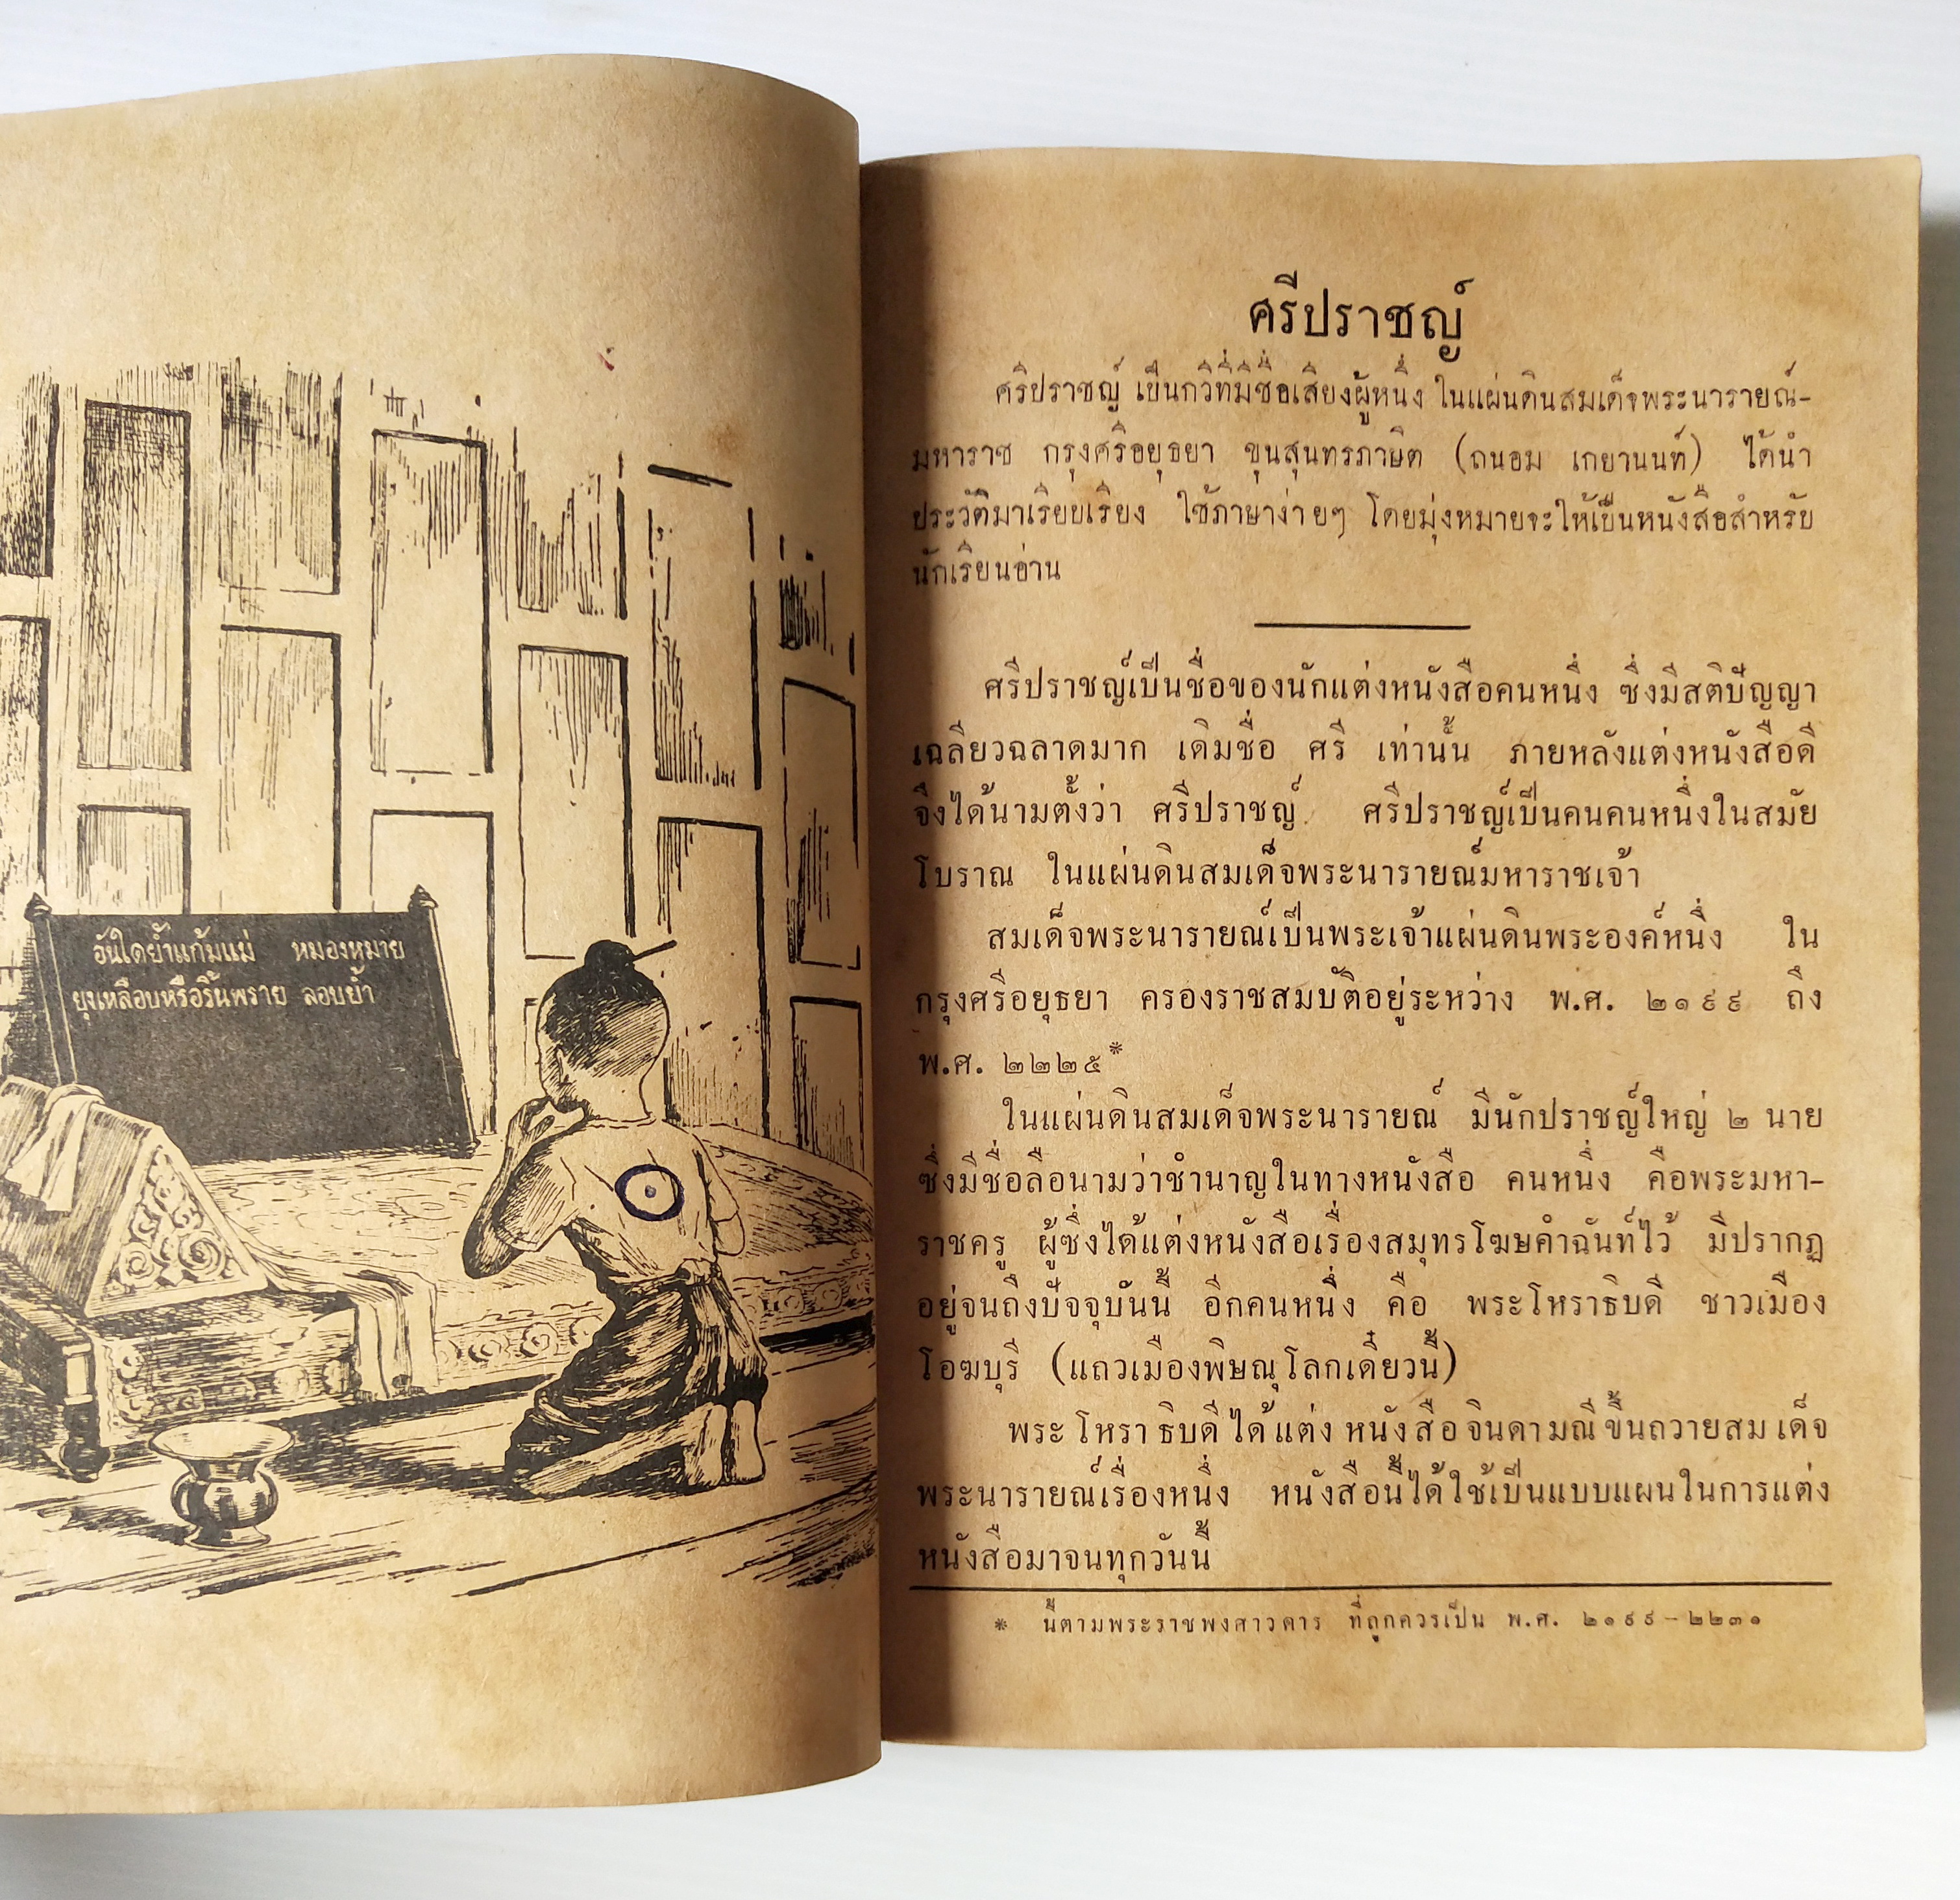 อันใดย้ำแก้มแม่ หมองหมาย
ยุงเหลือบหรือริ้นพราย ลอบย้ำ
ศรีปราชญ์
ศรีปราชญ์ เป็นกวีที่มีชื่อเสียงผู้หนึ่ง ในแผ่นดินสมเด็จพระนารายณ์-
มหาราช กรุงศรีอยุธยา ขุนสุนทรภาษิต (ถนอม เกยานนท์) ได้นำ
ประวัติมาเรียบเรียง ใช้ภาษาง่ายๆ โดยมุ่งหมายจะให้เป็นหนังสือสำหรับ
นักเรียนอ่าน
ศรีปราชญ์เป็นชื่อของนักแต่งหนังสือคนหนึ่ง ซึ่งมีสติปัญญา
เฉลียวฉลาดมาก เดิมชื่อ ศรี เท่านั้น ภายหลังแต่งหนังสือดี
จึงได้นามตั้งว่า ศรีปราชญ์ ศรีปราชญ์เป็นคนคนหนึ่งในสมัย
โบราณ ในแผ่นดินสมเด็จพระนารายณ์มหาราชเจ้า
สมเด็จพระนารายณ์เป็นพระเจ้าแผ่นดินพระองค์หนึ่ง ใน
กรุงศรีอยุธยา ครองราชสมบัติอยู่ระหว่าง พ.ศ. ๒๑๙๙ ถึง
พ.ศ. ๒๒๒๕*
ในแผ่นดินสมเด็จพระนารายณ์ มีนักปราชญ์ใหญ่ ๒ นาย
ซึ่งมีชื่อลือนามว่าชำนาญในทางหนังสือ คนหนึ่ง คือพระมหา-
ราชครู ผู้ซึ่งได้แต่งหนังสือเรื่องสมุทรโฆษคำฉันท์ไว้ มีปรากฏ
อยู่จนถึงปัจจุบันนี้ อีกคนหนึ่ง คือ พระโหราธิบดี ชาวเมือง
โอฆบุรี (แถวเมืองพิษณุโลกเดี๋ยวนี้)
พระโหราธิบดีได้แต่งหนังสือจินดามณีขึ้นถวายสมเด็จ
พระนารายณ์เรื่องหนึ่ง หนังสือนี้ได้ใช้เป็นแบบแผนในการแต่ง
หนังสือมาจนทุกวันนี้
* นี้ตามพระราชพงศาวดาร ที่ถูกควรเป็น พ.ศ. ๒๑๙๙-๒๒๓๑